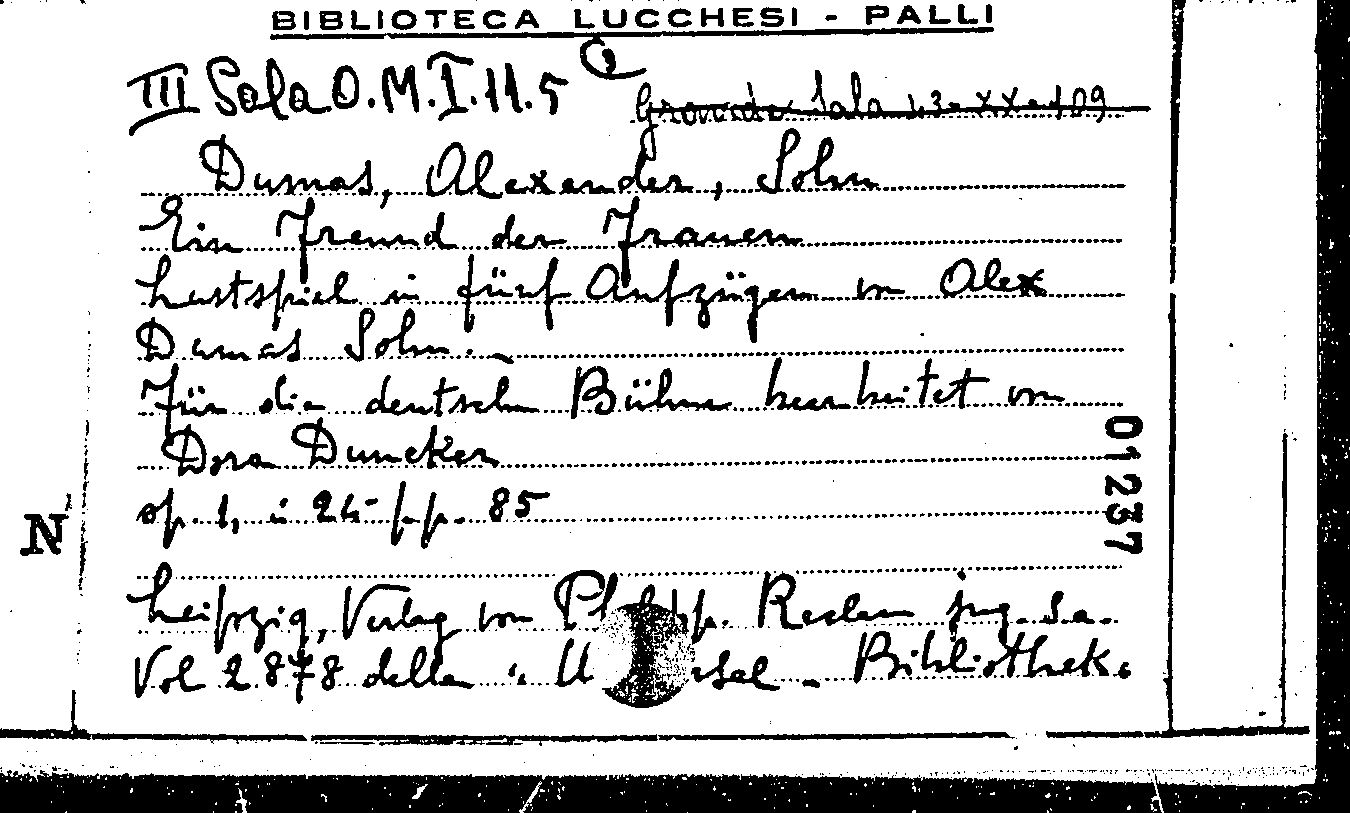 BIBLIOTECA LUCCHESI - PALLI
III Sala O.M.I.11.5
Grande Sala 23-XX-109
Dumas, Alexander, Sohn
Ein Freund der Frauen
Lustspiel in fünf Aufzügen von Alex
Dumas Sohn.
Für die deutsche Bühne bearbeitet von
Dora Duncker
op. 1, in 24- p.p. 85
01237
N
Leipzig, Verlag von Ph pp. Reclam jug. s.a.
Vol 2878 della "U rsal - Bibliothek.